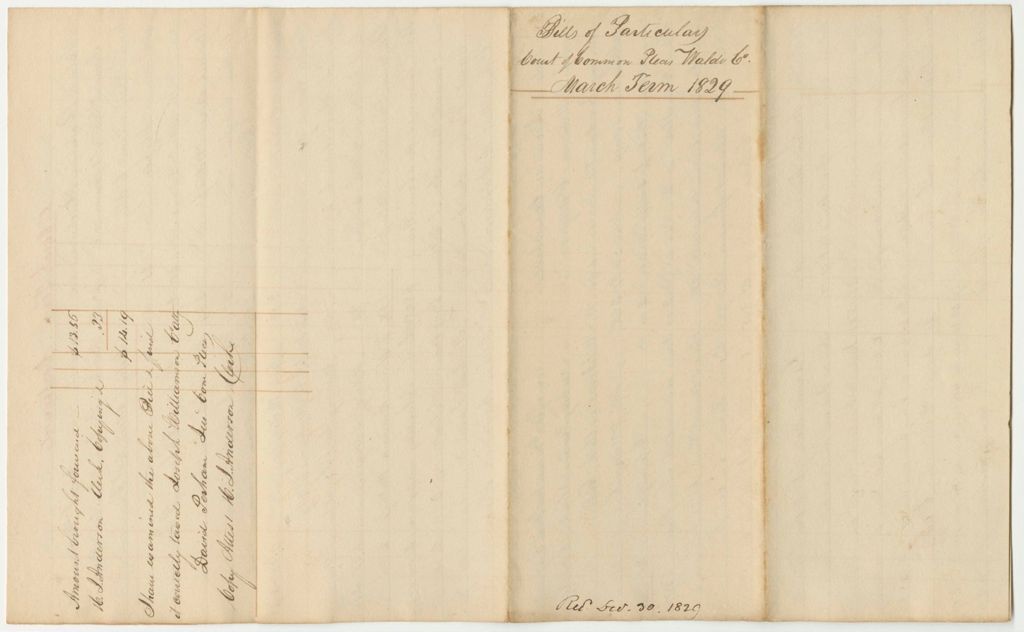 Bills of Particulars
Court of Common Pleas Waldo Co.
March Term 1829
Recd Dec. 30. 1829
Amount brought forward — $13.56
H. J. Anderson Clerk, Copying &
$14.19
I have examined the above Bill & find
it correctly taxed Joseph Williamson Co atty
David Perham Jus Com Pleas
Copy Attest H. J. Anderson Clerk